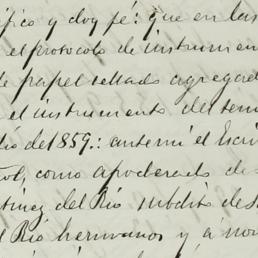 ífico y doy fé: que en las
el protocolo de instrumen
de papel sellado agregad
el instrumento del ten
lio del 1859.: antemí el Escri
ñol, como apoderado de
tinez del Rio subdito de S
l Rio hermanos y á nom